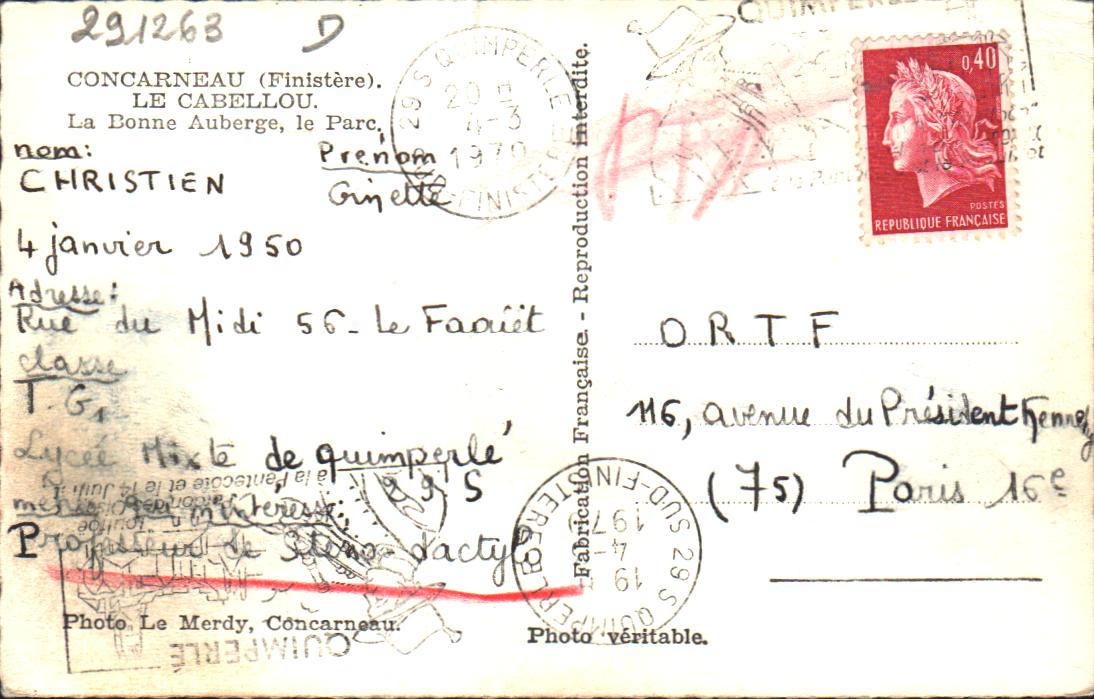 291263 D
CONCARNEAU (Finistère).
LE CABELLOU.
La Bonne Auberge, le Parc.
nom: Prénom
CHRISTIEN Ginette
4 janvier 1950
Adresse:
Rue du Midi 56 - Le Faouët
classe
T. G1
Lycée Mixte de quimperlé
29 S
métier qui m'intéresse:
Professeur de Sténo-dactylo
Photo Le Merdy, Concarneau.
Photo véritable.
Fabrication Française. - Reproduction interdite.
29 S QUIMPERLE
20 H
4-3
1970
SUD-FINISTERE
QUIMPERLÉ
0,40
POSTES
REPUBLIQUE FRANÇAISE
O R T F
116, avenue du Président Kennedy
(75) Paris 16e
29 S QUIMPERLE
19 H
4-
197
SUD-FINISTERE
QUIMPERLÉ
à la Pentecôte et le 14 Juil.